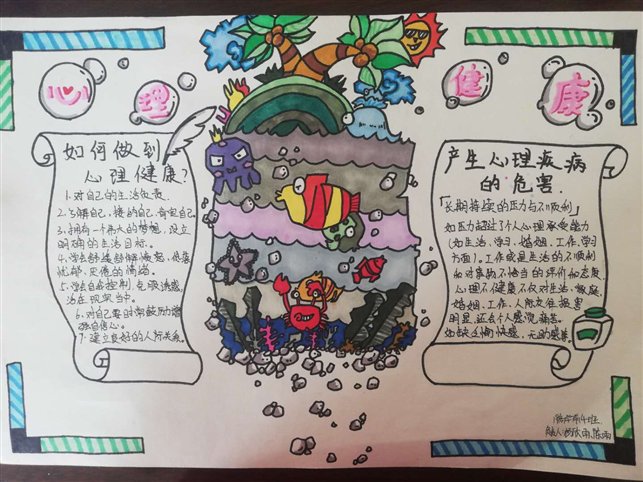 心理健康
如何做到
心理健康?
1.对自己的生活负责.
2.了解自己,接纳自己,奇宝自己.
3.拥有一个伟大的梦想,设立
明确的生活目标.
4.学会舒缓
忧郁、灾倦的情绪.
5.学会自我控制
活在现实当中.
6.对自己要时常鼓励增
强自信心.
7.建立良好的人际关系.
产生心理疾病
的危害.
「长期持续的压力与不顺利」
如压力超过了个人心理承受能力
(如生活、学习、婚姻、工作、学习
方面).工作或是生活的不顺利
如对事物不恰当的评价和态度.
心理不健康不仅对生活、家庭、
婚姻、工作、人际交往损害
明显,还会个人感觉痛苦.
如缺乏愉快感,无助感等.